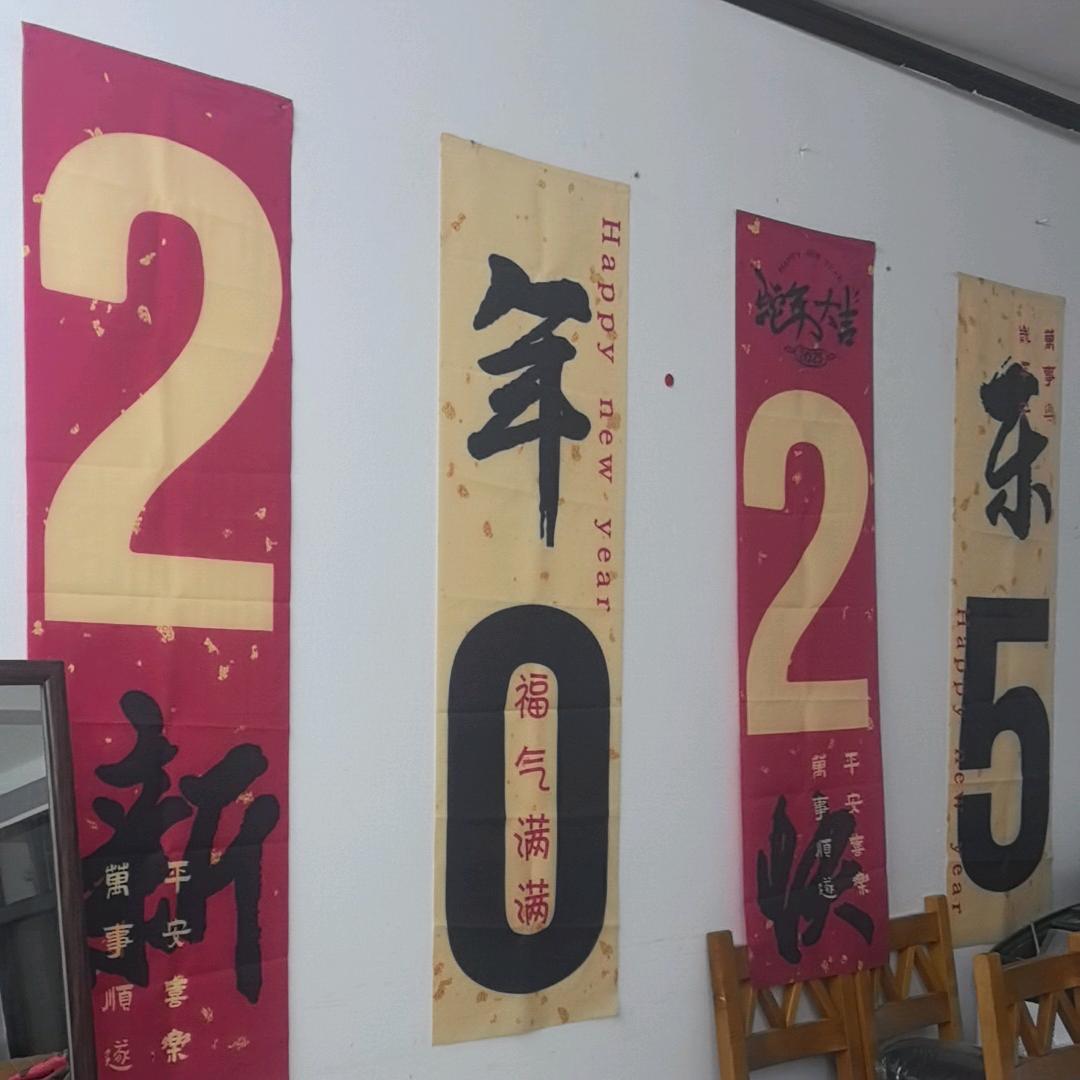 2
新
平安喜樂
萬事順遂
年
Happy new year
0
福气满满
HAPPY NEW YEAR
蛇年大吉
2025
2
快
平安喜樂
萬事順遂
乐
萬事
Happy new year
5